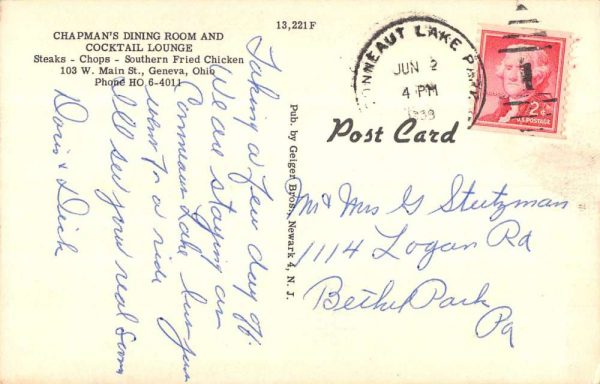 CHAPMAN'S DINING ROOM AND
COCKTAIL LOUNGE
Steaks - Chops - Southern Fried Chicken
103 W. Main St., Geneva, Ohio
Phone HO 6-4011
Taking a few day off
We are staying on
Conneaut Lake
went a ride
Will see you real soon
Doris & Dick
13,221F
Pub. by Geiger Bros., Newark 4, N. J.
Post Card
CONNEAUT LAKE
JUN 2
4 PM
2¢
U.S. POSTAGE
Mr & Mrs G Stutzman
1114 Logan Rd
Bethel Park
Pa